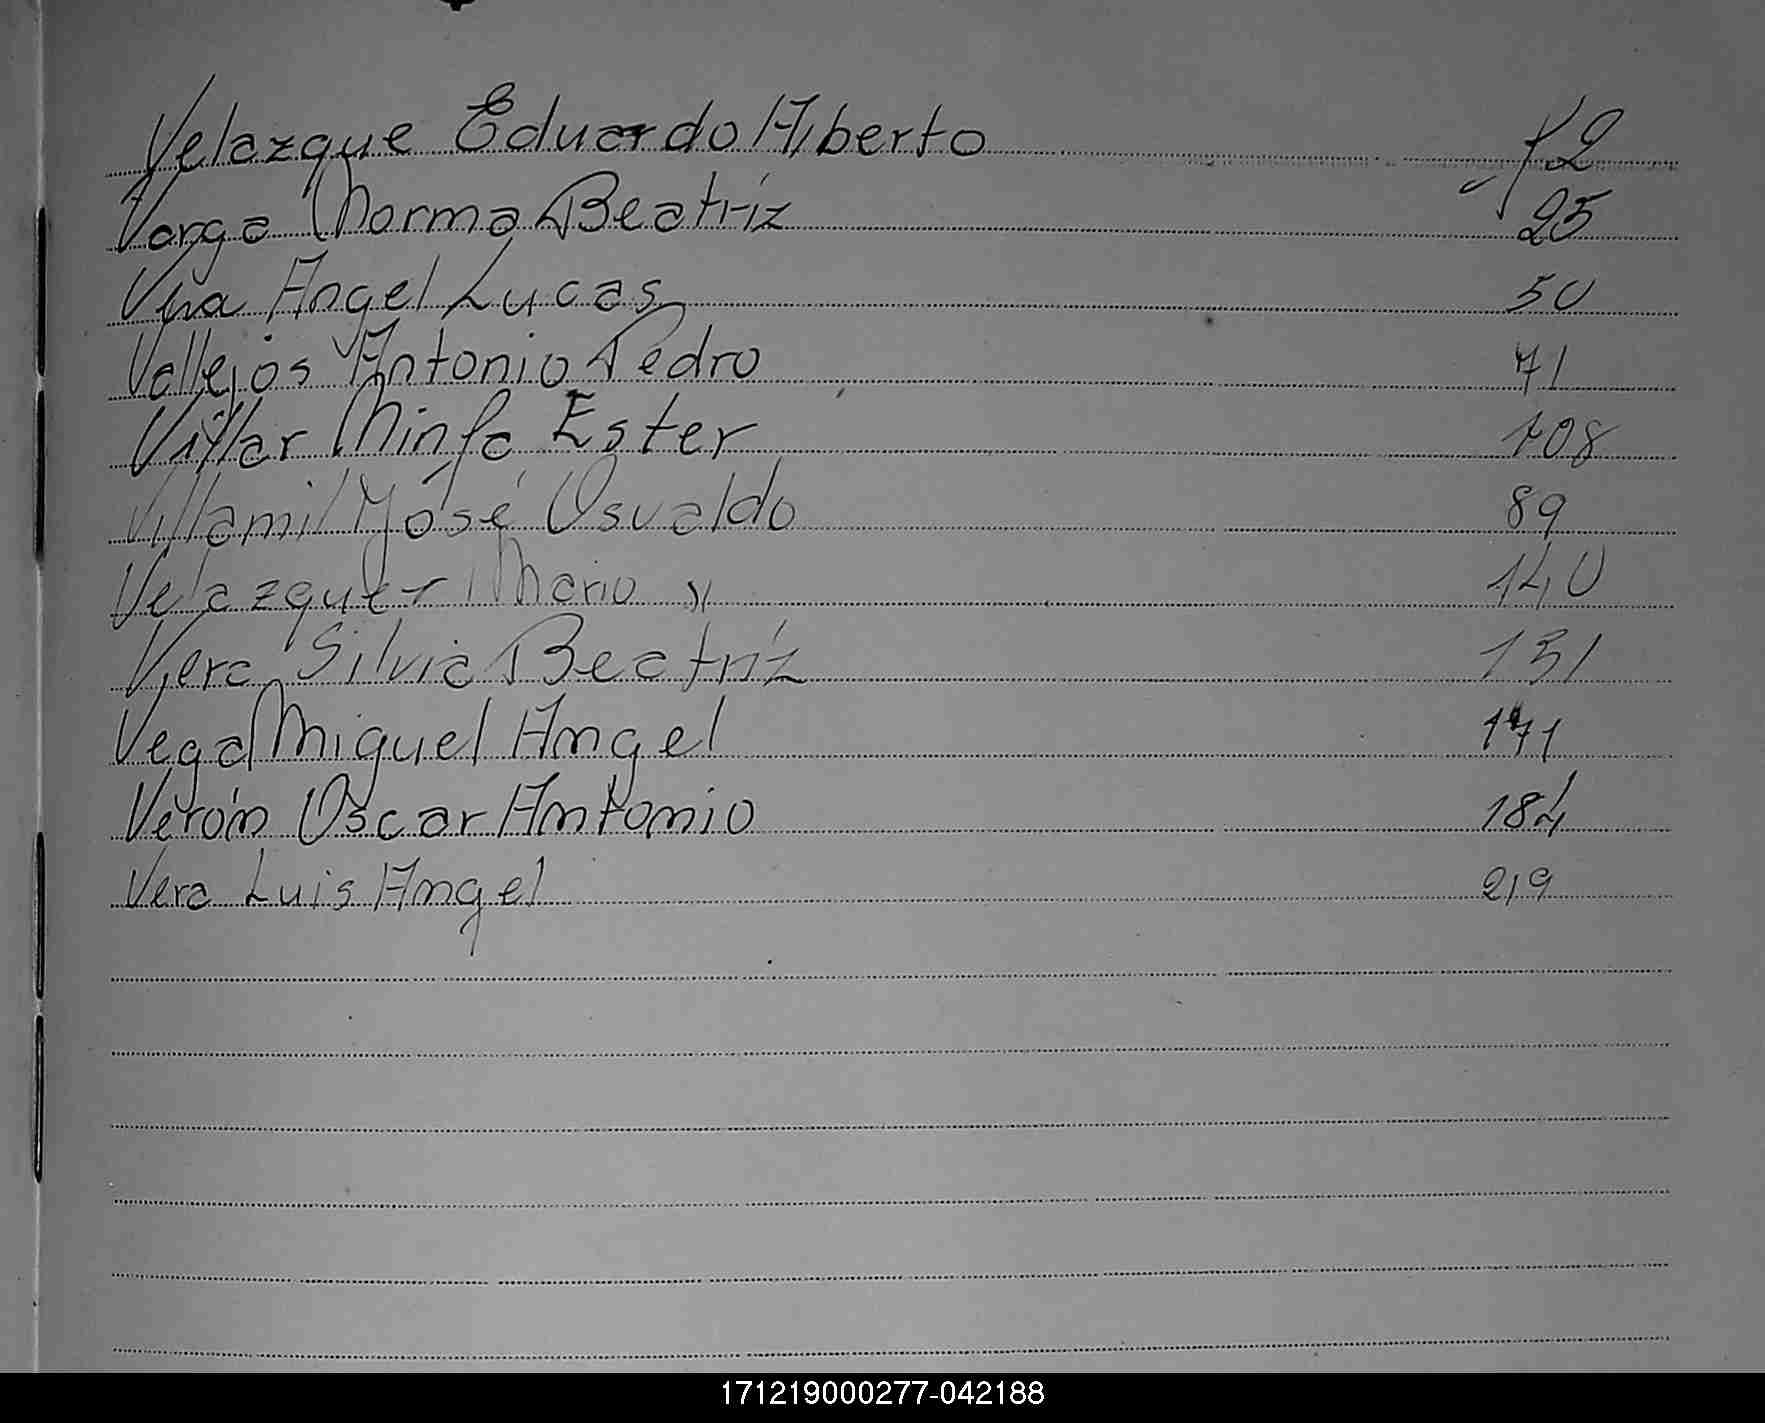 Velazque Eduardo Alberto 12
Varga Norma Beatriz 25
Vera Angel Lucas 50
Vallejos Antonio Pedro 71
Villar Ninfa Ester 108
Villamil José Osvaldo 89
Velazquez Mario 140
Vera Silvia Beatríz 151
Vega Miguel Angel 171
Verón Oscar Antonio 184
Vera Luis Angel 219
171219000277-042188